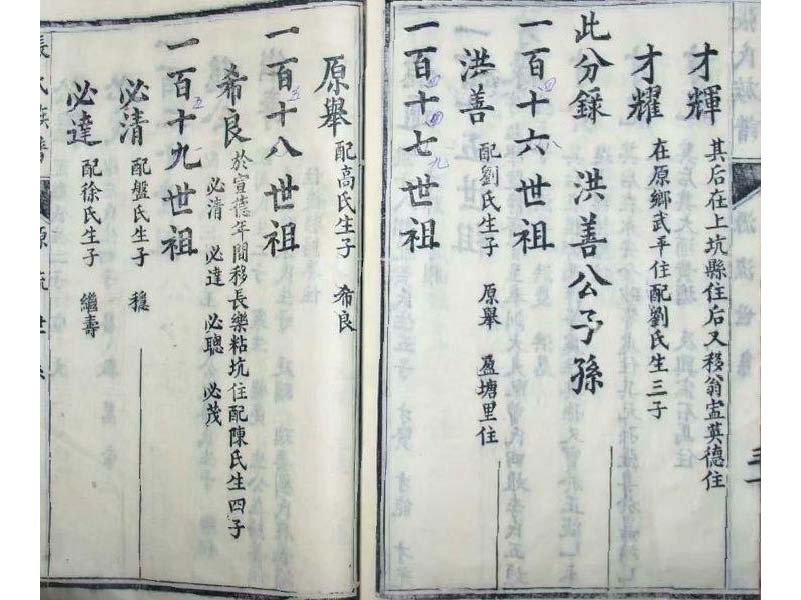 才輝 其后在上坑縣住后又移翁𡧛英德住
才耀 在原鄉武平住配劉氏生三子
此分録 洪善公子孫
一百十六世祖
洪善 配劉氏生子 原舉 盈塘里住
一百十七世祖
原舉 配高氏生子 希良
一百十八世祖
希良 於宣德年間移長樂粘坑住配陳氏生四子
必清 必達 必聰 必茂
一百十九世祖
必清 配盤氏生子 穏
必達 配徐氏生子 繼壽
張氏族譜 源流世系